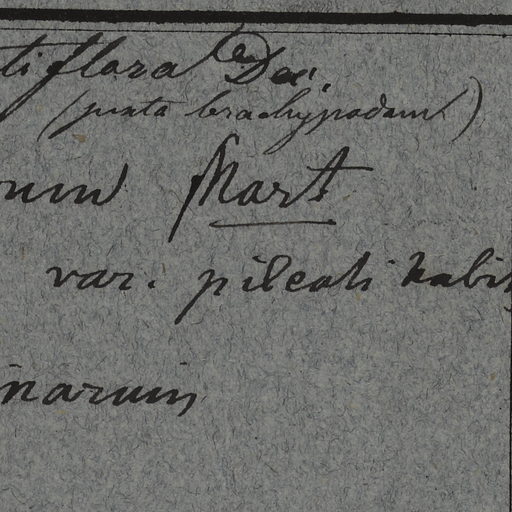 tiflora Dec.
(juxta brachypodam)
rum Mart
var. pileati habit
narum